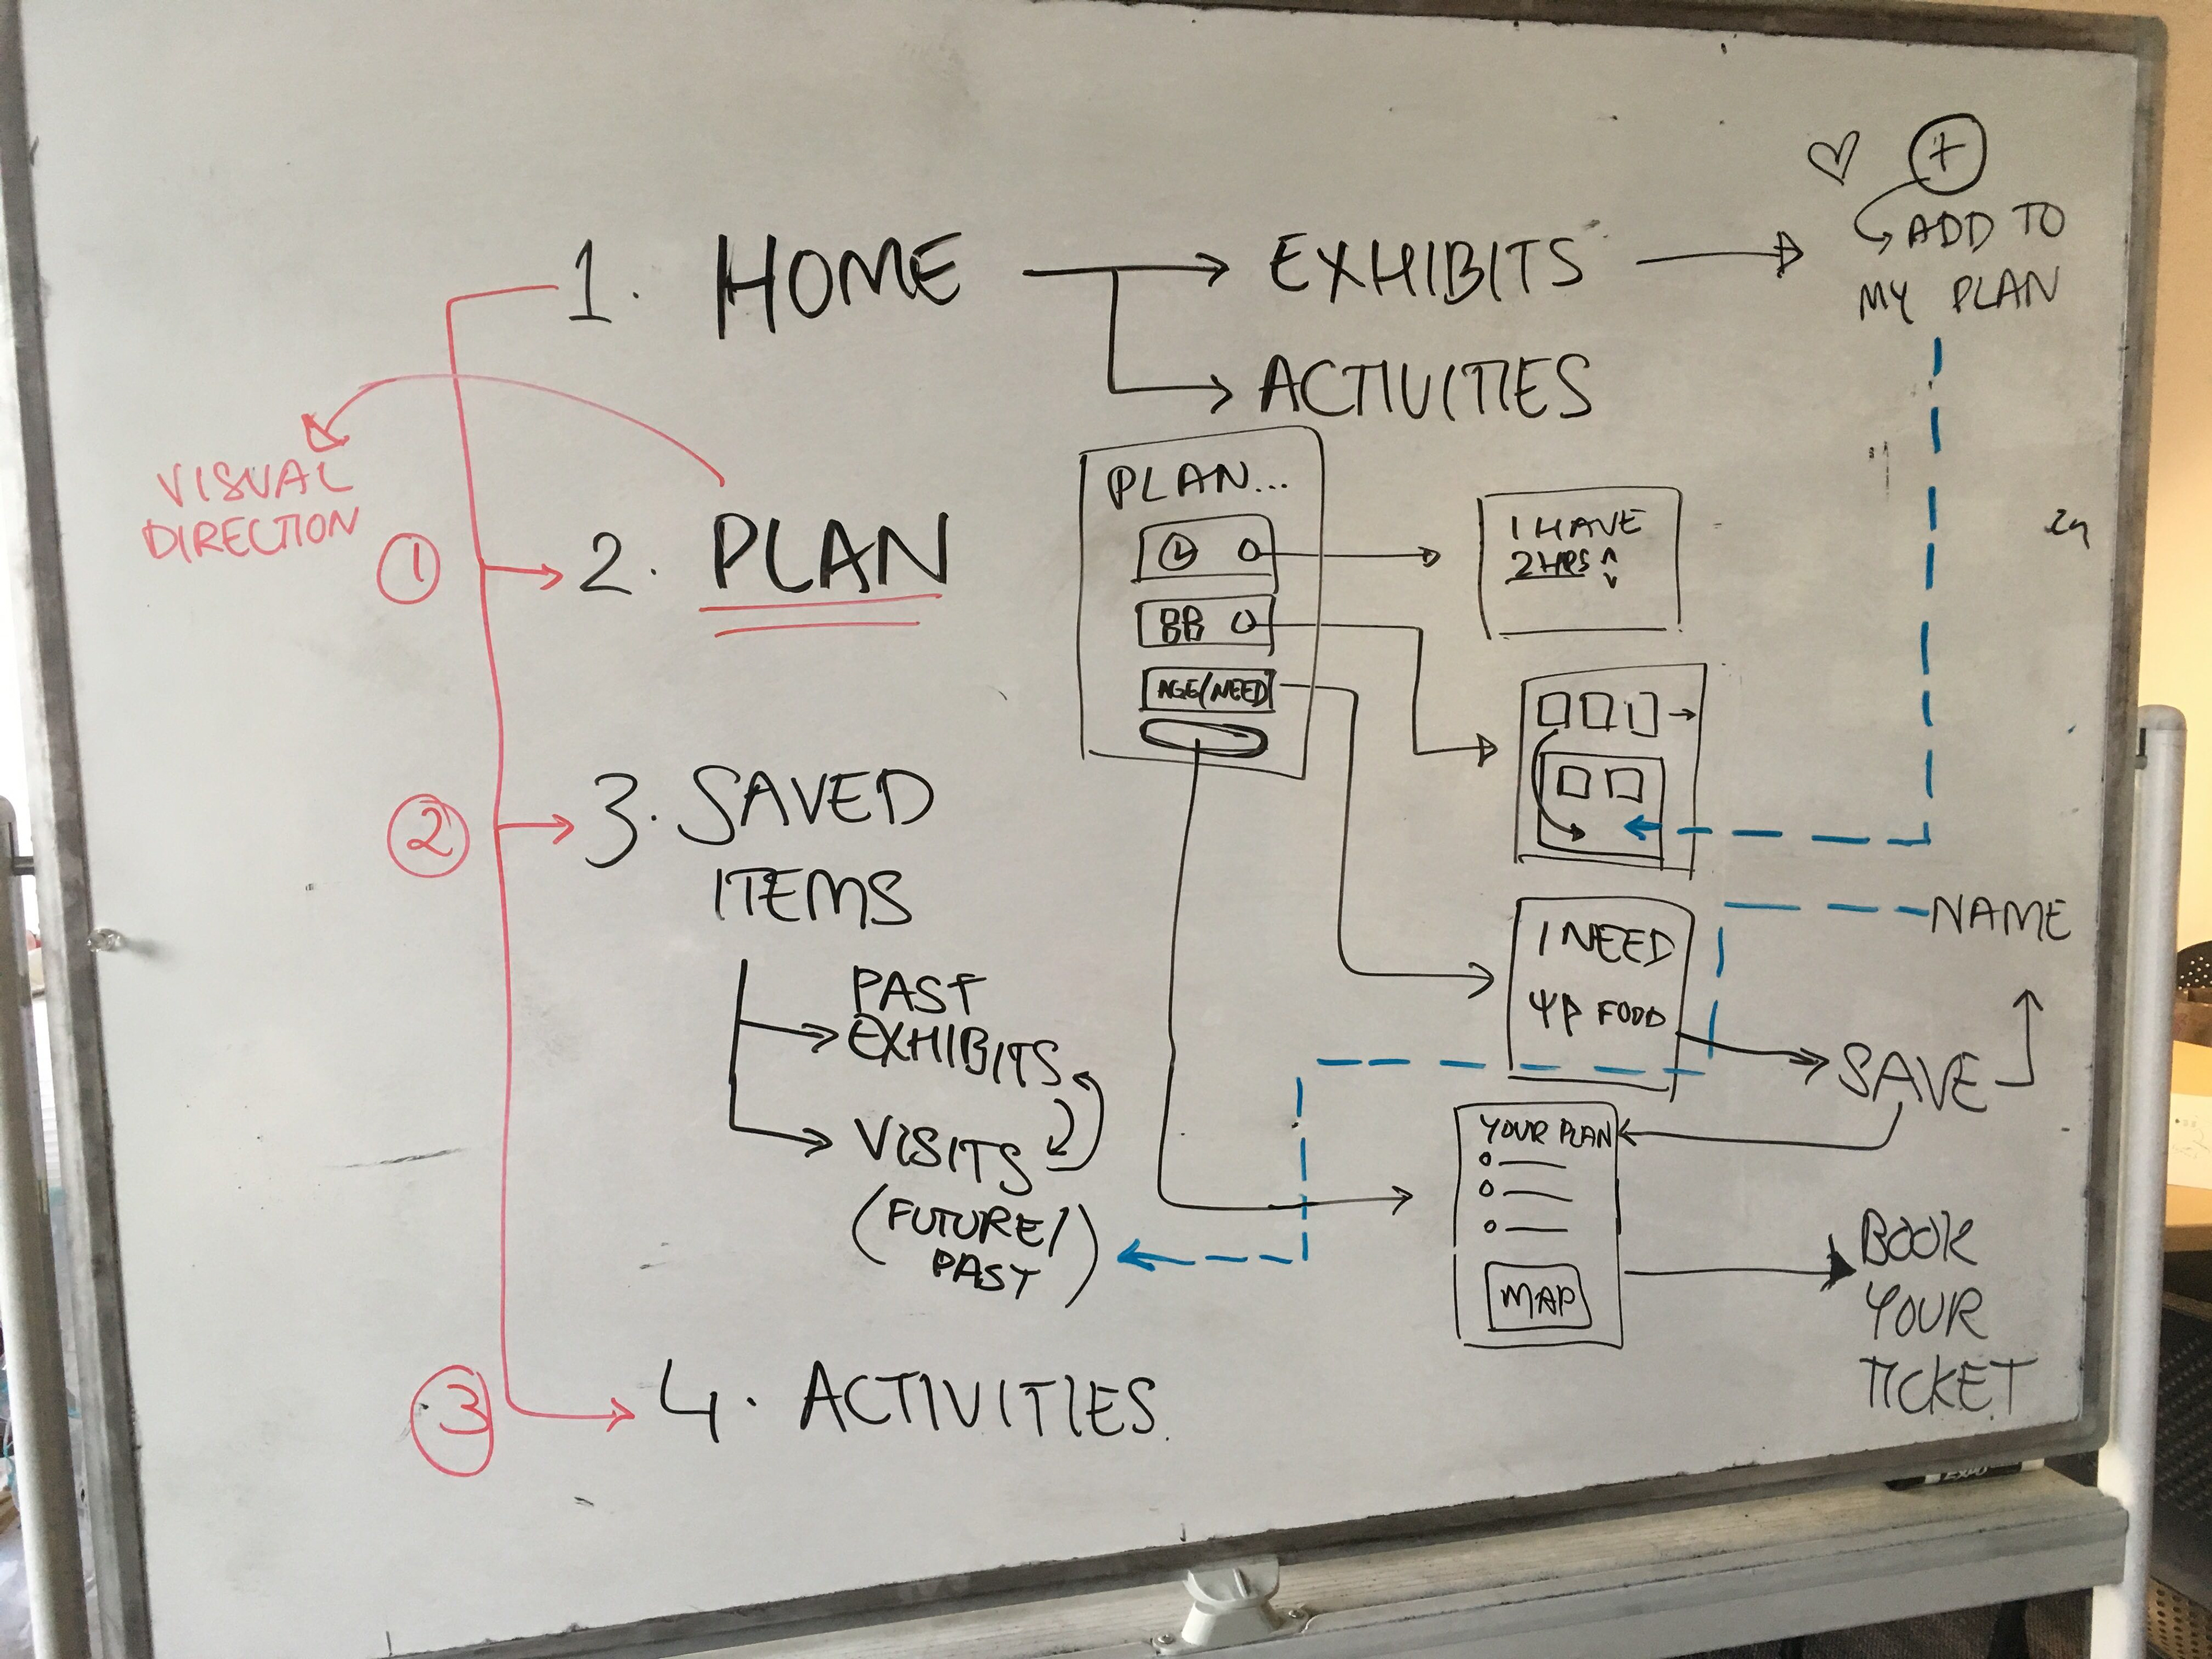 1. HOME
EXHIBITS
+
ADD TO
MY PLAN
ACTIVITIES
VISUAL
DIRECTION
1
2. PLAN
PLAN...
AGE/NEED
I HAVE
2 HRS
2
3. SAVED
ITEMS
PAST
EXHIBITS
VISITS
(FUTURE/
PAST)
I NEED
FOOD
NAME
SAVE
YOUR PLAN
MAP
BOOK
YOUR
TICKET
3
4. ACTIVITIES